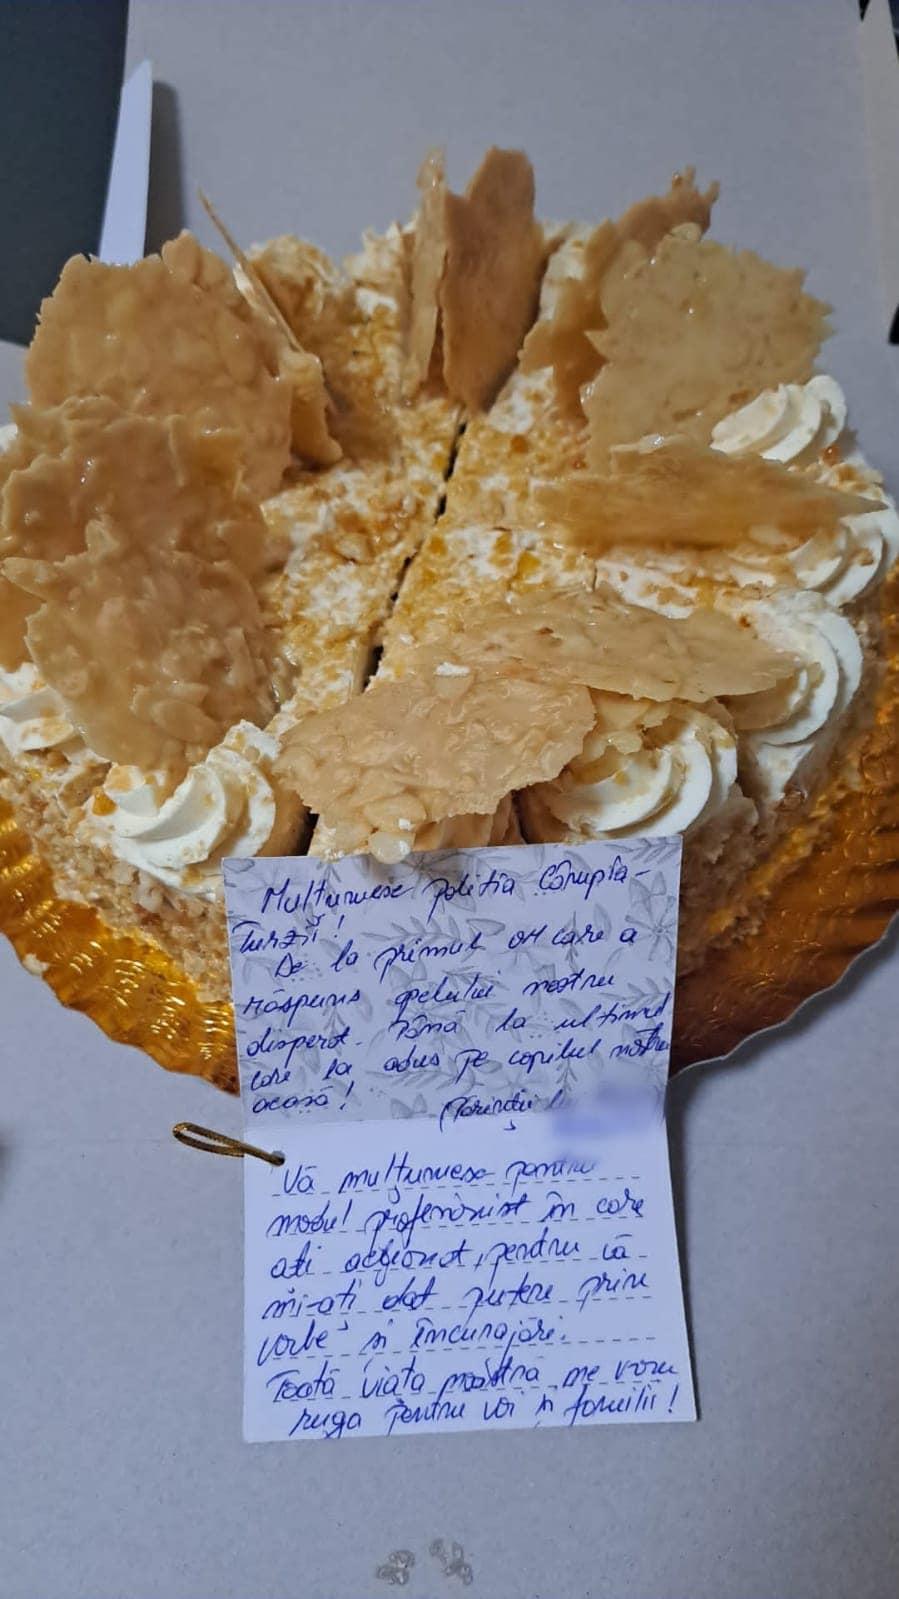 Multumesc politia Câmpia-
Turzii!
De la primul om care a
răspuns apelului nostru
disperat. Până la ultimul
care la adus pe copilul nostru
acasă!
Părinții
Vă mulțumesc pentru
modul profesionist în care
ați acționat, pentru că
mi-ați dat putere prin
vorbe și încurajări.
Toată viata noastra ne vom
ruga pentru voi și familii!